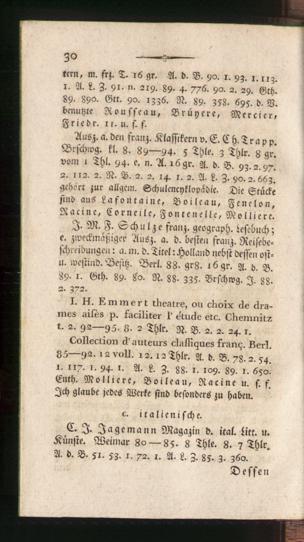 30
kern, m. frz. T. 16 gr. A. d. B. 90. 1. 93. 1. 113.
1. A. L. Z. 91. n. 219. 89. 4. 776. 90. 2. 29. Gth.
89. 890. Gtt. 90. 1336. N. 89. 358. 695. d. V.
benutzte Rousseau, Brüyere, Mercier,
Friedr. 11. u. s. f.
Ausz. a. den franz. Klassikern v. E. Ch. Trapp.
Brschwg. kl. 8. 89—94. 5 Thle. 3 Thlr. 8 gr.
vom 1 Thl. 94. e. n. A. 16 gr. A. d. B. 93. 2. 97.
2. 112. 2. N. B. 2. 2. 14. 1. 2. A. L. Z. 90. 2. 663.
gehört zur allgem. Schulencyklopädie. Die Stücke
sind aus Lafontaine, Boileau, Fenelon,
Racine, Corneile, Fontenelle, Molliere.
J. M. F. Schulze franz. geograph. Lesebuch;
e. zweckmäßiger Ausz. a. d. besten franz. Reisebe-
schreibungen: a. m. d. Titel: Holland nebst dessen ost-
u. westind. Besitz. Berl. 88. gr8. 16 gr. A. d. B.
89. 1. Gth. 89. 80. N. 88. 335. Brschwg. J. 88.
2. 372.
I. H. Emmert theatre, ou choix de dra-
mes aisés p. faciliter l' étude etc. Chemnitz
t. 2. 92—95. 8. 2 Thlr. N. B. 2. 2. 24. 1.
Collection d'auteurs classiques franç. Berl.
85—92. 12 voll. 12. 12 Thlr. A. d. B. 78. 2. 54.
1. 117. 1. 94. 1. A. L. Z. 88. 1. 109. 89. 1. 650.
Enth. Molliere, Boileau, Racine u. s. f.
Ich glaube jedes Werke sind besonders zu haben.
c. italienische.
C. J. Jagemann Magazin d. ital. Litt. u.
Künste. Weimar 80—85. 8 Thle. 8. 7 Thlr.
A. d. B. 51. 53. 1. 72. 1. A. L. Z. 85. 3. 360.
Dessen